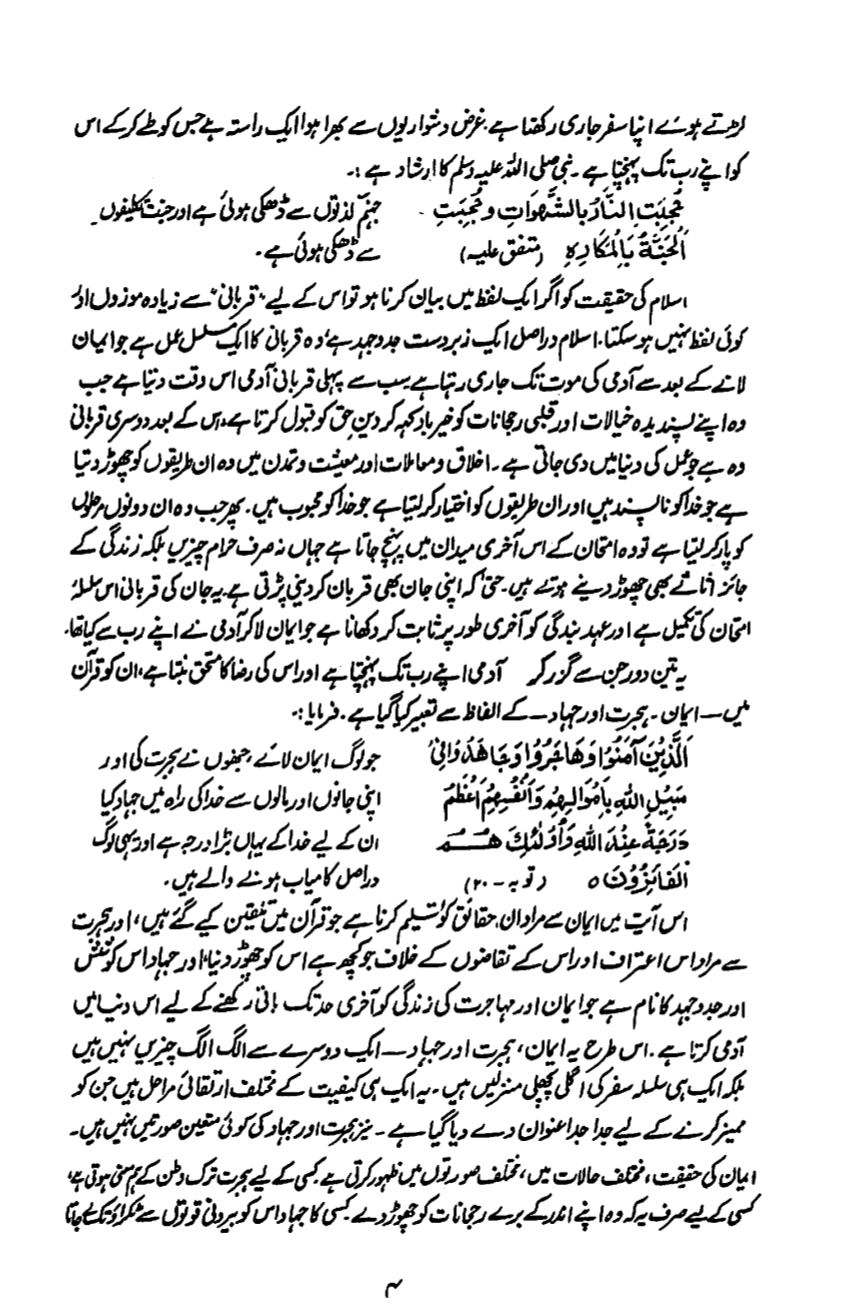 لڑتے ہوئے اپنا سفر جاری رکھتا ہے۔ غرض دشواریوں سے بھرا ہوا ایک راستہ ہے جس کو طے کرکے اس
کو اپنے رب تک پہنچنا ہے۔ نبی صلی اللہ علیہ وسلم کا ارشاد ہے :۔
حُجِبَتِ النَّارُ بِالشَّهَوَاتِ وحُجِبَتِ جہنم لذتوں سے ڈھکی ہوئی ہے اور جنت تکلیفوں
اَلْجَنَّةُ بَالْمَكَارِهِ (متفق علیہ) سے ڈھکی ہوئی ہے۔
اسلام کی حقیقت کو اگر ایک لفظ میں بیان کرنا ہو تو اس کے لیے "قربانی" سے زیادہ موزوں اور
کوئی لفظ نہیں ہو سکتا۔ اسلام دراصل ایک زبردست جدوجہد ہے، وہ قربانی کا ایک مسلسل عمل ہے جو ایمان
لانے کے بعد سے آدمی کی موت تک جاری رہتا ہے سب سے پہلی قربانی آدمی اس وقت دیتا ہے جب
وہ اپنے پسندیدہ خیالات اور قلبی رجحانات کو خیرباد کہہ کر دین حق کو قبول کرتا ہے، اس کے بعد دوسری قربانی
وہ ہے جو عمل کی دنیا میں دی جاتی ہے۔ اخلاق و معاملات اور معیشت و تمدن میں وہ ان طریقوں کو چھوڑ دیتا
ہے جو خدا کو ناپسند ہیں اور ان طریقوں کو اختیار کر لیتا ہے جو خدا کو محبوب ہیں۔ پھر جب وہ ان دونوں مرحلوں
کو پار کر لیتا ہے تو وہ امتحان کے اس آخری میدان میں پہنچ جاتا ہے جہاں نہ صرف حرام چیزیں بلکہ زندگی کے
جائز اثاثے بھی چھوڑ دینے ہوتے ہیں۔ حتیٰ کہ اپنی جان بھی قربان کر دینی پڑتی ہے۔ یہ جان کی قربانی اس سلسلۂ
امتحان کی تکمیل ہے اور عہد بندگی کو آخری طور پر ثابت کر دکھانا ہے جو ایمان لاکر آدمی نے اپنے رب سے کیا تھا۔
یہ تین دور جن سے گزر کر آدمی اپنے رب تک پہنچتا ہے اور اس کی رضا کا مستحق بنتا ہے، ان کو قرآن
میں — ایمان۔ ہجرت اور جہاد — کے الفاظ سے تعبیر کیا گیا ہے۔ فرمایا :۔
اَلَّذِيْنَ آمَنُوْا وَهَاجَرُوْا وَجَاهَدُوْا فِىْ جو لوگ ایمان لائے، جنھوں نے ہجرت کی اور
سَبِيْلِ اللهِ بِاَمْوَالِهِمْ وَاَنْفُسِهِمْ اَعْظَمُ اپنی جانوں اور مالوں سے خدا کی راہ میں جہاد کیا
دَرَجَةً عِنْدَ اللهِ وَاُولٰئِكَ هُمُ ان کے لیے خدا کے یہاں بڑا درجہ ہے اور یہی لوگ
الْفَائِزُوْنَ ٥ (توبہ - ۲۰) دراصل کامیاب ہونے والے ہیں۔
اس آیت میں ایمان سے مراد ان حقائق کو تسلیم کرنا ہے جو قرآن میں تلقین کیے گئے ہیں، اور ہجرت
سے مراد اس اعتراف اور اس کے تقاضوں کے خلاف جو کچھ ہے اس کو چھوڑ دینا، اور جہاد اس کوشش
اور جدوجہد کا نام ہے جو ایمان اور مہاجرت کی زندگی کو آخری حد تک باقی رکھنے کے لیے اس دنیا میں
آدمی کرتا ہے۔ اس طرح یہ ایمان، ہجرت اور جہاد — ایک دوسرے سے الگ الگ چیزیں نہیں ہیں
بلکہ ایک ہی سلسلہ سفر کی اگلی پچھلی منزلیں ہیں۔ یہ ایک ہی کیفیت کے مختلف ارتقائی مراحل ہیں جن کو
ممیز کرنے کے لیے جدا جدا عنوان دے دیا گیا ہے۔ نیز ہجرت اور جہاد کی کوئی متعین صورتیں نہیں ہیں۔
ایمان کی حقیقت، مختلف حالات میں، مختلف صورتوں میں ظہور کرتی ہے کسی کے لیے ہجرت ترک وطن کے ہم معنی ہوتی ہے،
کسی کے لیے صرف یہ کہ وہ اپنے اندر کے برے رجحانات کو چھوڑ دے۔ کسی کا جہاد اس کو بیرونی قوتوں سے ٹکراؤ تک لے جاتا
۴